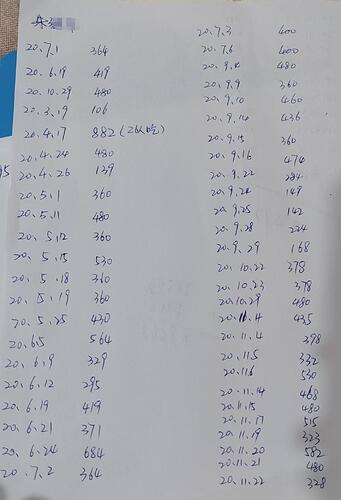 20.7.1 364
20.6.19 419
20.10.29 480
20.3.19 106
20.4.17 882(2人吃)
20.4.24 480
20.4.26 129
20.5.1 360
20.5.11 480
20.5.12 360
20.5.15 530
20.5.18 360
20.5.19 360
20.5.25 430
20.6.5 564
20.6.9 329
20.6.12 295
20.6.19 419
20.6.21 371
20.6.24 684
20.7.2 364
20.7.3 400
20.7.6 400
20.9.4 480
20.9.9 360
20.9.10 460
20.9.14 436
20.9.15 360
20.9.16 474
20.9.22 284
20.9.24 149
20.9.25 142
20.9.28 224
20.9.29 168
20.10.22 378
20.10.23 378
20.10.29 480
20.11.4 435
20.11.4 398
20.11.5 332
20.11.6 530
20.11.14 468
20.11.15 480
20.11.17 515
20.11.19 323
20.11.20 582
20.11.21 480
20.11.22 328